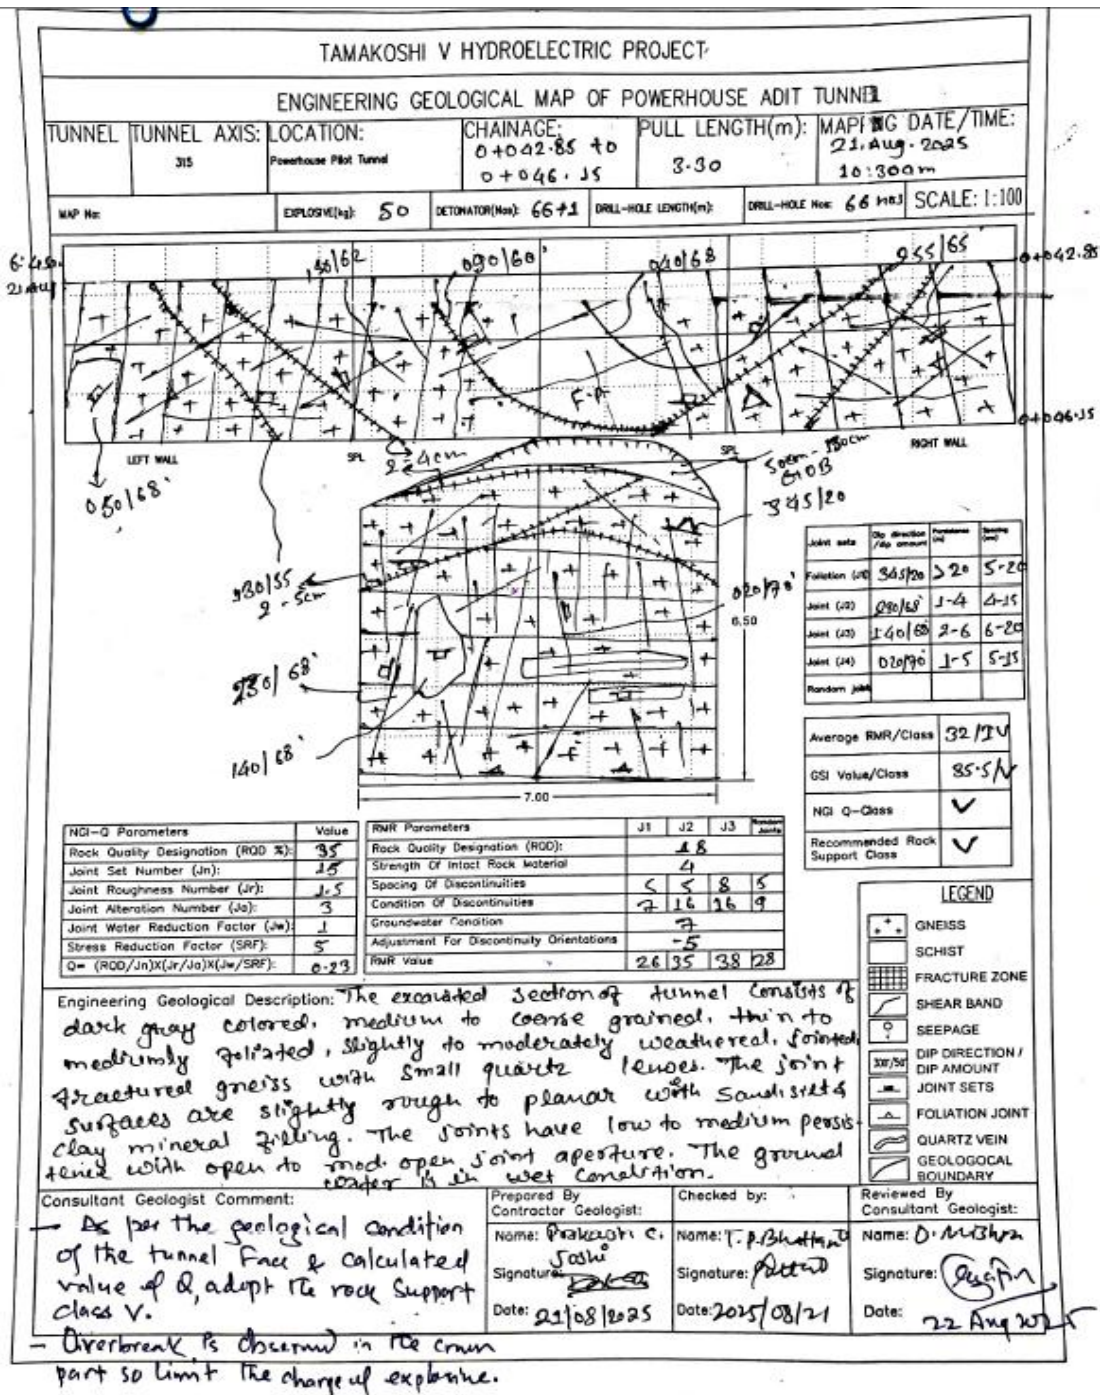 TAMAKOSHI V HYDROELECTRIC PROJECT
ENGINEERING GEOLOGICAL MAP OF POWERHOUSE ADIT TUNNEL
TUNNEL
TUNNEL AXIS:
315
LOCATION:
Powerhouse Pilot Tunnel
CHAINAGE:
0+042.85 to
0+046.15
PULL LENGTH(m):
3.30
MAPING DATE/TIME:
21.Aug.2025
10:30am
MAP No:
EXPLOSIVE(kg): 50
DETONATOR(Nos): 66+1
DRILL-HOLE LENGTH(m):
DRILL-HOLE Nos: 66 nos
SCALE: 1:100
130/62
090/60°
040/68
255/65
0+042.85
21.Aug
F.P
0+046.15
LEFT WALL
SPL
2-4cm
SPL
RIGHT WALL
050/68°
345/20
2-5cm
020/70°
6.50
230/68°
140/68°
7.00
Joint sets Dip direction /dip amount Persistence (m) Spacing (cm)
Foliation (J1) 345/20 >20 5-20
Joint (J2) 230/68° 1-4 4-15
Joint (J3) 140/68 2-6 6-20
Joint (J4) 020/70° 1-5 5-15
Random joint
Average RMR/Class 32/IV
GSI Value/Class
NGI Q-Class V
Recommended Rock Support Class V
NGI-Q Parameters Value
Rock Quality Designation (RQD %): 35
Joint Set Number (Jn): 15
Joint Roughness Number (Jr): 1.5
Joint Alteration Number (Ja): 3
Joint Water Reduction Factor (Jw): 1
Stress Reduction Factor (SRF): 5
Q= (RQD/Jn)X(Jr/Ja)X(Jw/SRF): 0.23
RMR Parameters J1 J2 J3 Random Joints
Rock Quality Designation (RQD): 18
Strength Of Intact Rock Material 4
Spacing Of Discontinuities 5 5 8 5
Condition Of Discontinuities 7 16 16 9
Groundwater Condition 7
Adjustment For Discontinuity Orientations -5
RMR Value 26 35 38 28
LEGEND
GNEISS
SCHIST
FRACTURE ZONE
SHEAR BAND
SEEPAGE
300°/50° DIP DIRECTION / DIP AMOUNT
JOINT SETS
FOLIATION JOINT
QUARTZ VEIN
GEOLOGOCAL BOUNDARY
Engineering Geological Description: The excavated section of tunnel consists of
dark gray colored, medium to coarse grained, thin to
mediumly foliated, slightly to moderately weathered, jointed,
fractured gneiss with small quartz lenses. The joint
surfaces are slightly rough to planar with sand silt &
clay mineral filling. The joints have low to medium persis-
tence with open to mod. open joint aperture. The ground
water is in wet condition.
Consultant Geologist Comment:
- As per the geological condition
of the tunnel Face & calculated
value of Q, adopt the rock support
class V.
- Overbreak is observed in the crown
part so limit the charge of explosive.
Prepared By
Contractor Geologist:
Name: Prakash C.
Joshi
Signature:
Date: 21/08/2025
Checked by:
Name: T.P.Bhattarai
Signature:
Date: 2025/08/21
Reviewed By
Consultant Geologist:
Name: D. Mishra
Signature:
Date: 22 Aug 2025